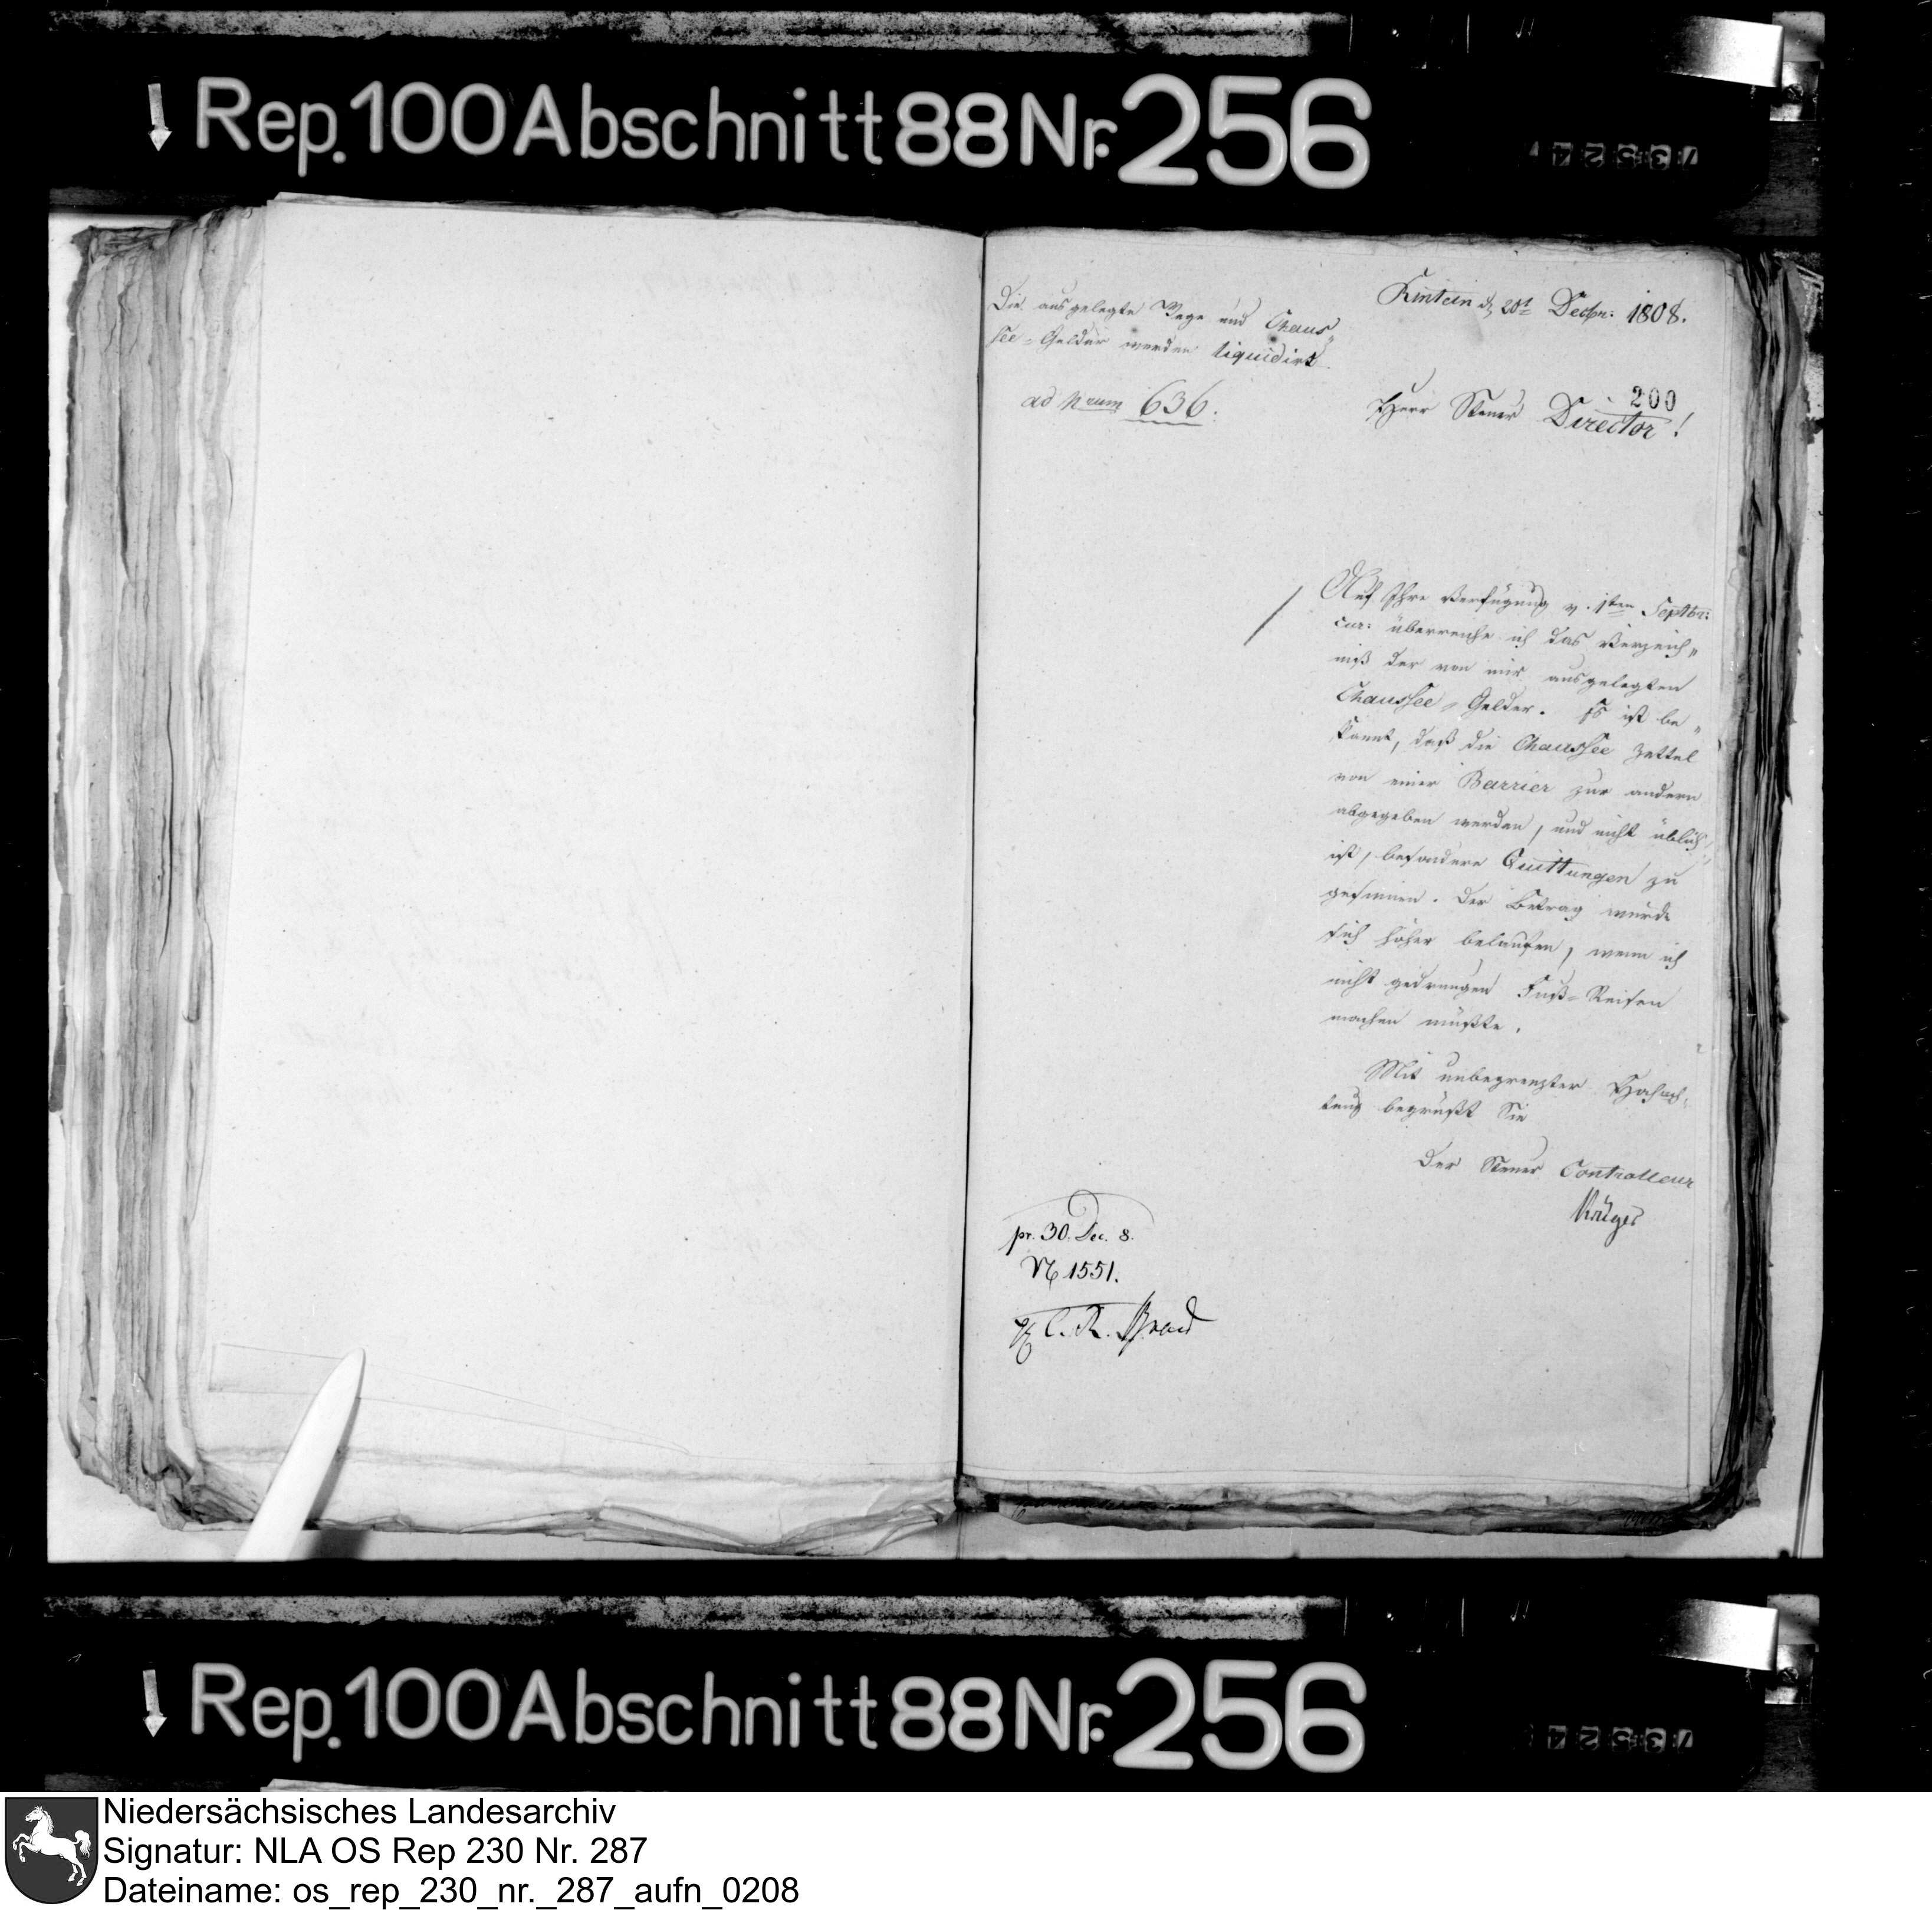 Rep. 100 Abschnitt 88 Nr. 256
73524
Die ausgelegte Wege und Chaus„
see-Gelder werden liquidirt
ad Nrum 636.
Rinteln d 20t Decbr: 1808.
200
Herr Steuer Director!
Auf Ihre Verfügung v. 1ten Septbr:
cur: überreiche ich das Verzeich„
niß der von mir ausgelegten
Chaussee-Gelder. Es ist be„
kannt, daß die Chaussee Zettel
von einer Barrier zur andern
abgegeben werden, und nicht üblich
ist, besondere Quittungen zu
gesinnen. Der Betrag würde
sich höher belaufen, wenn ich
nicht gedrungen Fuß-Reisen
machen müßte.
Mit unbegrenzter Hochach„
tung begrüßt Sie
Der Steuer Controlleur
Krüger
pr. 30. Dec. 8.
N 1551.
C. R.
Rep. 100 Abschnitt 88 Nr. 256
73524
Niedersächsisches Landesarchiv
Signatur: NLA OS Rep 230 Nr. 287
Dateiname: os_rep_230_nr._287_aufn_0208